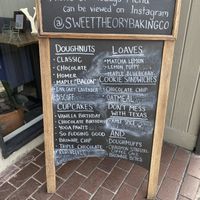 can be viewed on Instagram
@SWEETTHEORYBAKINGCO
DOUGHNUTS
• CLASSIC
• CHOCOLATE
• HOMER
• MAPLE "BACON"
• EARL GREY LAVENDER
• BISCOFF
CUPCAKES
• VANILLA BIRTHDAY
• CHOCOLATE BIRTHDAY
• YOGA PANTS
• SO FUDGING GOOD
• BROWNIE CHIP
• TRIPLE CHOCOLATE
• RED VELVET
LOAVES
• MATCHA LEMON
• LEMON POPPY
• MAPLE BLUEBERRY
COOKIE SANDWICHES
• CHOCOLATE CHIP
• OATMEAL
• DON'T MESS
WITH TEXAS
AND
• DOUGHMUFFS
• CINNAMON
• COFFEE
• BROWNIE BITES